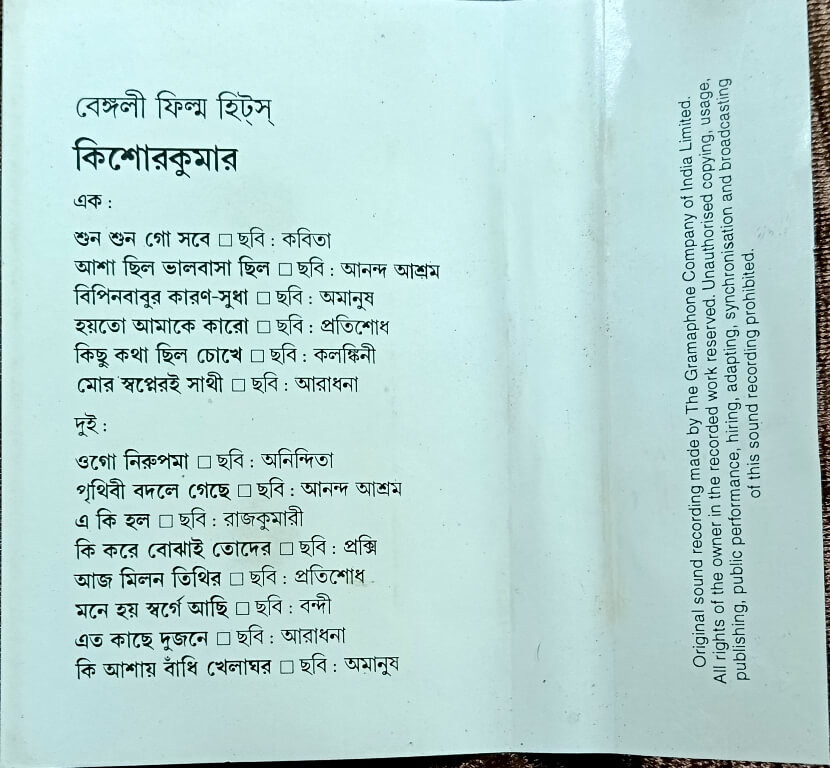 বেঙ্গলী ফিল্ম হিট্স্
কিশোরকুমার
এক :
শুন শুন গো সবে □ ছবি : কবিতা
আশা ছিল ভালবাসা ছিল □ ছবি : আনন্দ আশ্রম
বিপিনবাবুর কারণ-সুধা □ ছবি : অমানুষ
হয়তো আমাকে কারো □ ছবি : প্রতিশোধ
কিছু কথা ছিল চোখে □ ছবি : কলঙ্কিনী
মোর স্বপ্নেরই সাথী □ ছবি : আরাধনা
দুই :
ওগো নিরুপমা □ ছবি : অনিন্দিতা
পৃথিবী বদলে গেছে □ ছবি : আনন্দ আশ্রম
এ কি হল □ ছবি : রাজকুমারী
কি করে বোঝাই তোদের □ ছবি : প্রক্সি
আজ মিলন তিথির □ ছবি : প্রতিশোধ
মনে হয় স্বর্গে আছি □ ছবি : বন্দী
এত কাছে দুজনে □ ছবি : আরাধনা
কি আশায় বাঁধি খেলাঘর □ ছবি : অমানুষ
Original sound recording made by The Gramaphone Company of India Limited.
All rights of the owner in the recorded work reserved. Unauthorised copying, usage,
publishing, public performance, hiring, adapting, synchronisation and broadcasting
of this sound recording prohibited.